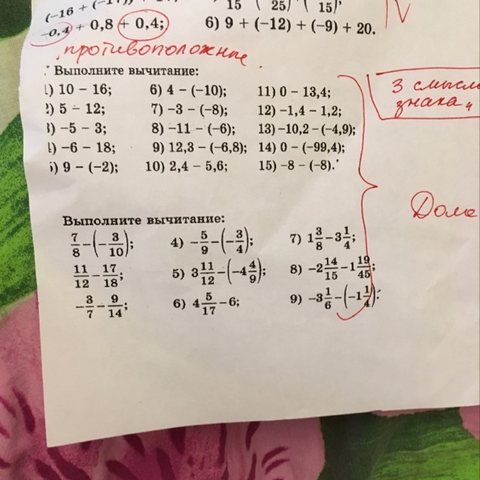 (-16 + (-17)) + 3
15 ( 25) ( 15)
-0,4 + 0,8 + 0,4; 6) 9 + (-12) + (-9) + 20.
противоположные
Выполните вычитание:
1) 10 – 16; 6) 4 – (–10); 11) 0 – 13,4;
2) 5 – 12; 7) –3 – (–8); 12) –1,4 – 1,2;
3) –5 – 3; 8) –11 – (–6); 13) –10,2 – (–4,9);
4) –6 – 18; 9) 12,3 – (–6,8); 14) 0 – (–99,4);
5) 9 – (–2); 10) 2,4 – 5,6; 15) –8 – (–8).
3 смысла
знака „
Дома
Выполните вычитание:
7/8 – (–3/10); 4) –5/9 – (–3/4); 7) 1 3/8 – 3 1/4;
11/12 – 17/18; 5) 3 11/12 – (–4 4/9); 8) –2 14/15 – 1 19/45;
–3/7 – 9/14; 6) 4 5/17 – 6; 9) –3 1/6 – (–1 1/4).